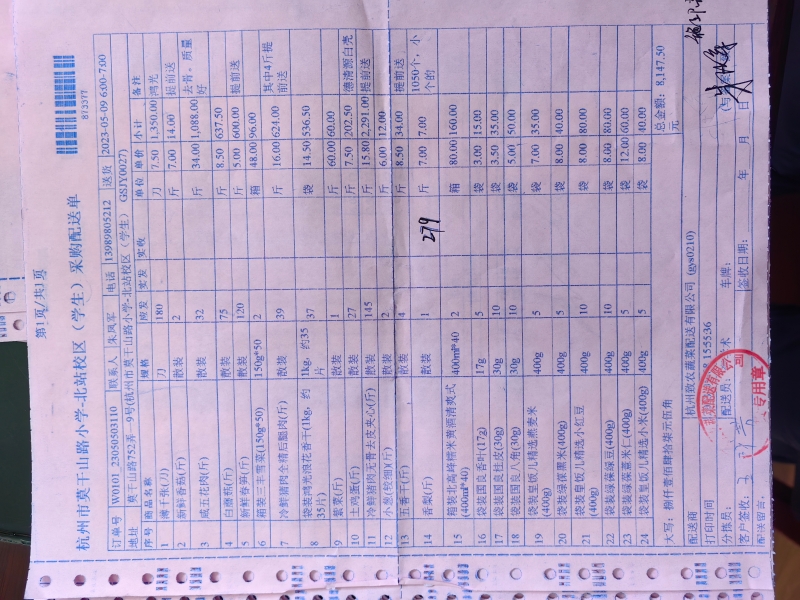 第1页/共1页
杭州市莫干山路小学-北站校区（学生）采购配送单
873377
订单号 JW0101_23050503110 联系人 朱凤军 电话 13989805212 送货 2023-05-09 6:00-7:00
地址 莫干山路752弄一9号(杭州市莫干山路小学-北站校区（学生） GSJY0027)
序号 商品名称 规格 应发 实发 实收 单位 单价 小计 备注
1 薄千张(刀) 刀 180 刀 7.50 1,350.00 鸿光
2 新鲜香菇(斤) 散装 2 斤 7.00 14.00 提前送
3 咸五花肉(斤) 散装 32 斤 34.00 1,088.00 去骨。质量好
4 白蘑菇(斤) 散装 75 斤 8.50 637.50
5 新鲜春笋(斤) 散装 120 斤 5.00 600.00 提前送
6 箱装三丰雪菜(150g*50) 150g*50 2 箱 48.00 96.00
7 冷鲜猪肉全精后腿肉(斤) 散装 39 斤 16.00 624.00 其中4斤提前送
8 袋装鸿光浪花香干(1kg，约35片) 1kg，约35片 37 袋 14.50 536.50
9 紫菜(斤) 散装 1 斤 60.00 60.00
10 土鸡蛋(斤) 散装 27 斤 7.50 202.50 德清源白壳
11 冷鲜猪肉无骨去皮夹心(斤) 散装 145 斤 15.80 2,291.00 提前送
12 小葱(较细)(斤) 散装 2 斤 6.00 12.00
13 五香干(斤) 散装 4 斤 8.50 34.00 提前送
14 香梨(斤) 散装 1 279 斤 7.00 7.00 1050个，小个的
15 箱装北高峰糯米黄酒清爽式(400ml*40) 400ml*40 2 箱 80.00 160.00
16 袋装国良香叶(17g) 17g 5 袋 3.00 15.00
17 袋装国良桂皮(30g) 30g 10 袋 3.50 35.00
18 袋装国良八角(30g) 30g 10 袋 5.00 50.00
19 袋装皇饭儿精选燕麦米(400g) 400g 5 袋 7.00 35.00
20 袋装绿葆黑米(400g) 400g 5 袋 8.00 40.00
21 袋装皇饭儿精选小红豆(400g) 400g 10 袋 8.00 80.00
22 袋装绿葆绿豆(400g) 400g 10 袋 8.00 80.00
23 袋装绿葆薏米仁(400g) 400g 5 袋 12.00 60.00
24 袋装皇饭儿精选小米(400g) 400g 5 袋 8.00 40.00
大写：捌仟壹佰肆拾柒元伍角 总金额：8,147.50元
配送商 杭州致农蔬菜配送有限公司 (gys0210)
打印时间
分拣员： 配送员： 车牌：
客户签收： 签收日期： 年 月 日
配送留言：
专用章